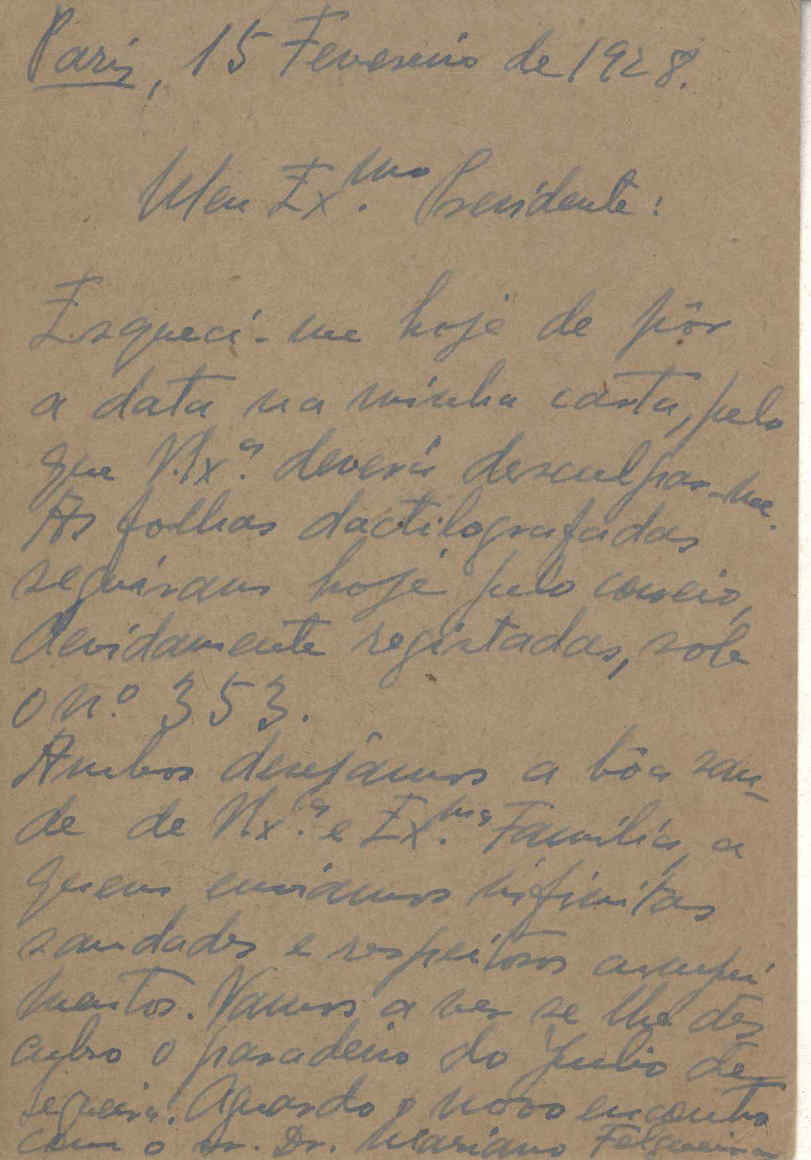 Paris, 15 Fevereiro de 1928.
Meu Ex.mo Presidente:
Esqueci-me hoje de pôr
a data na minha carta, pelo
que V.Ex.ª deverá desculpar-me.
As folhas dactilografadas
seguiram hoje pelo correio,
devidamente registadas, sob
o nº 353.
Ambos desejâmos a bôa sau-
de de V.Ex.ª e Ex.ma Familia, a
quem enviamos infinitas
saudades e respeitosos cumpri
mentos. Vamos a ver se lhe des
cubro o paradeiro do Julio de
Aguardo o novo encontro
com o sr. Dr. Mariano Felgueiras